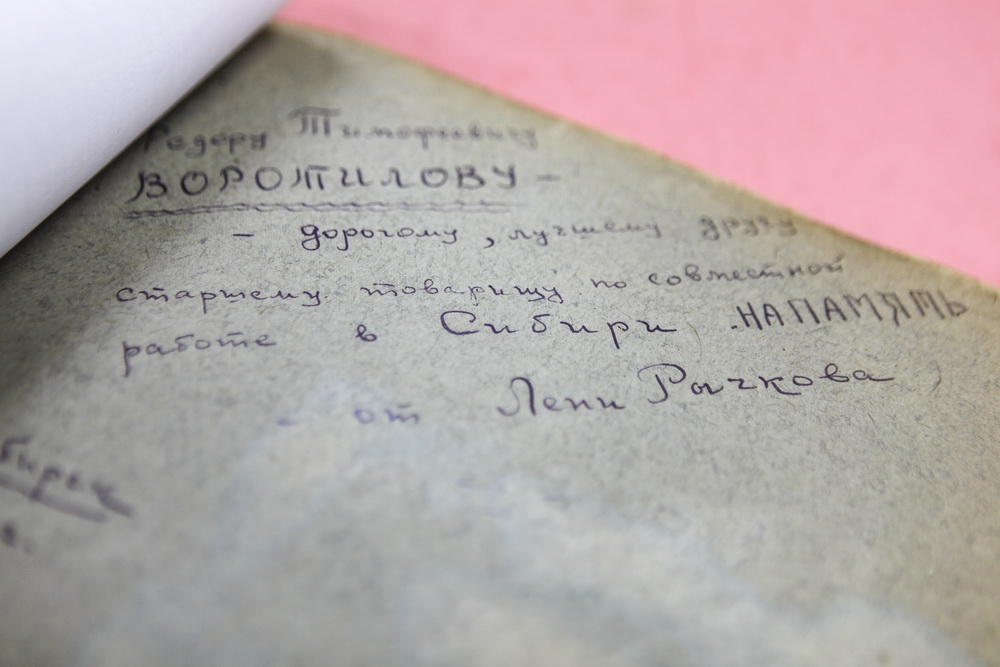 Федеру Тимофеевичу
ВОРОПИЛОВУ —
— дорогому, лучшему другу
старшему товарищу по совместной
работе в Сибири НА ПАМЯТЬ
— от Лени Рычкова